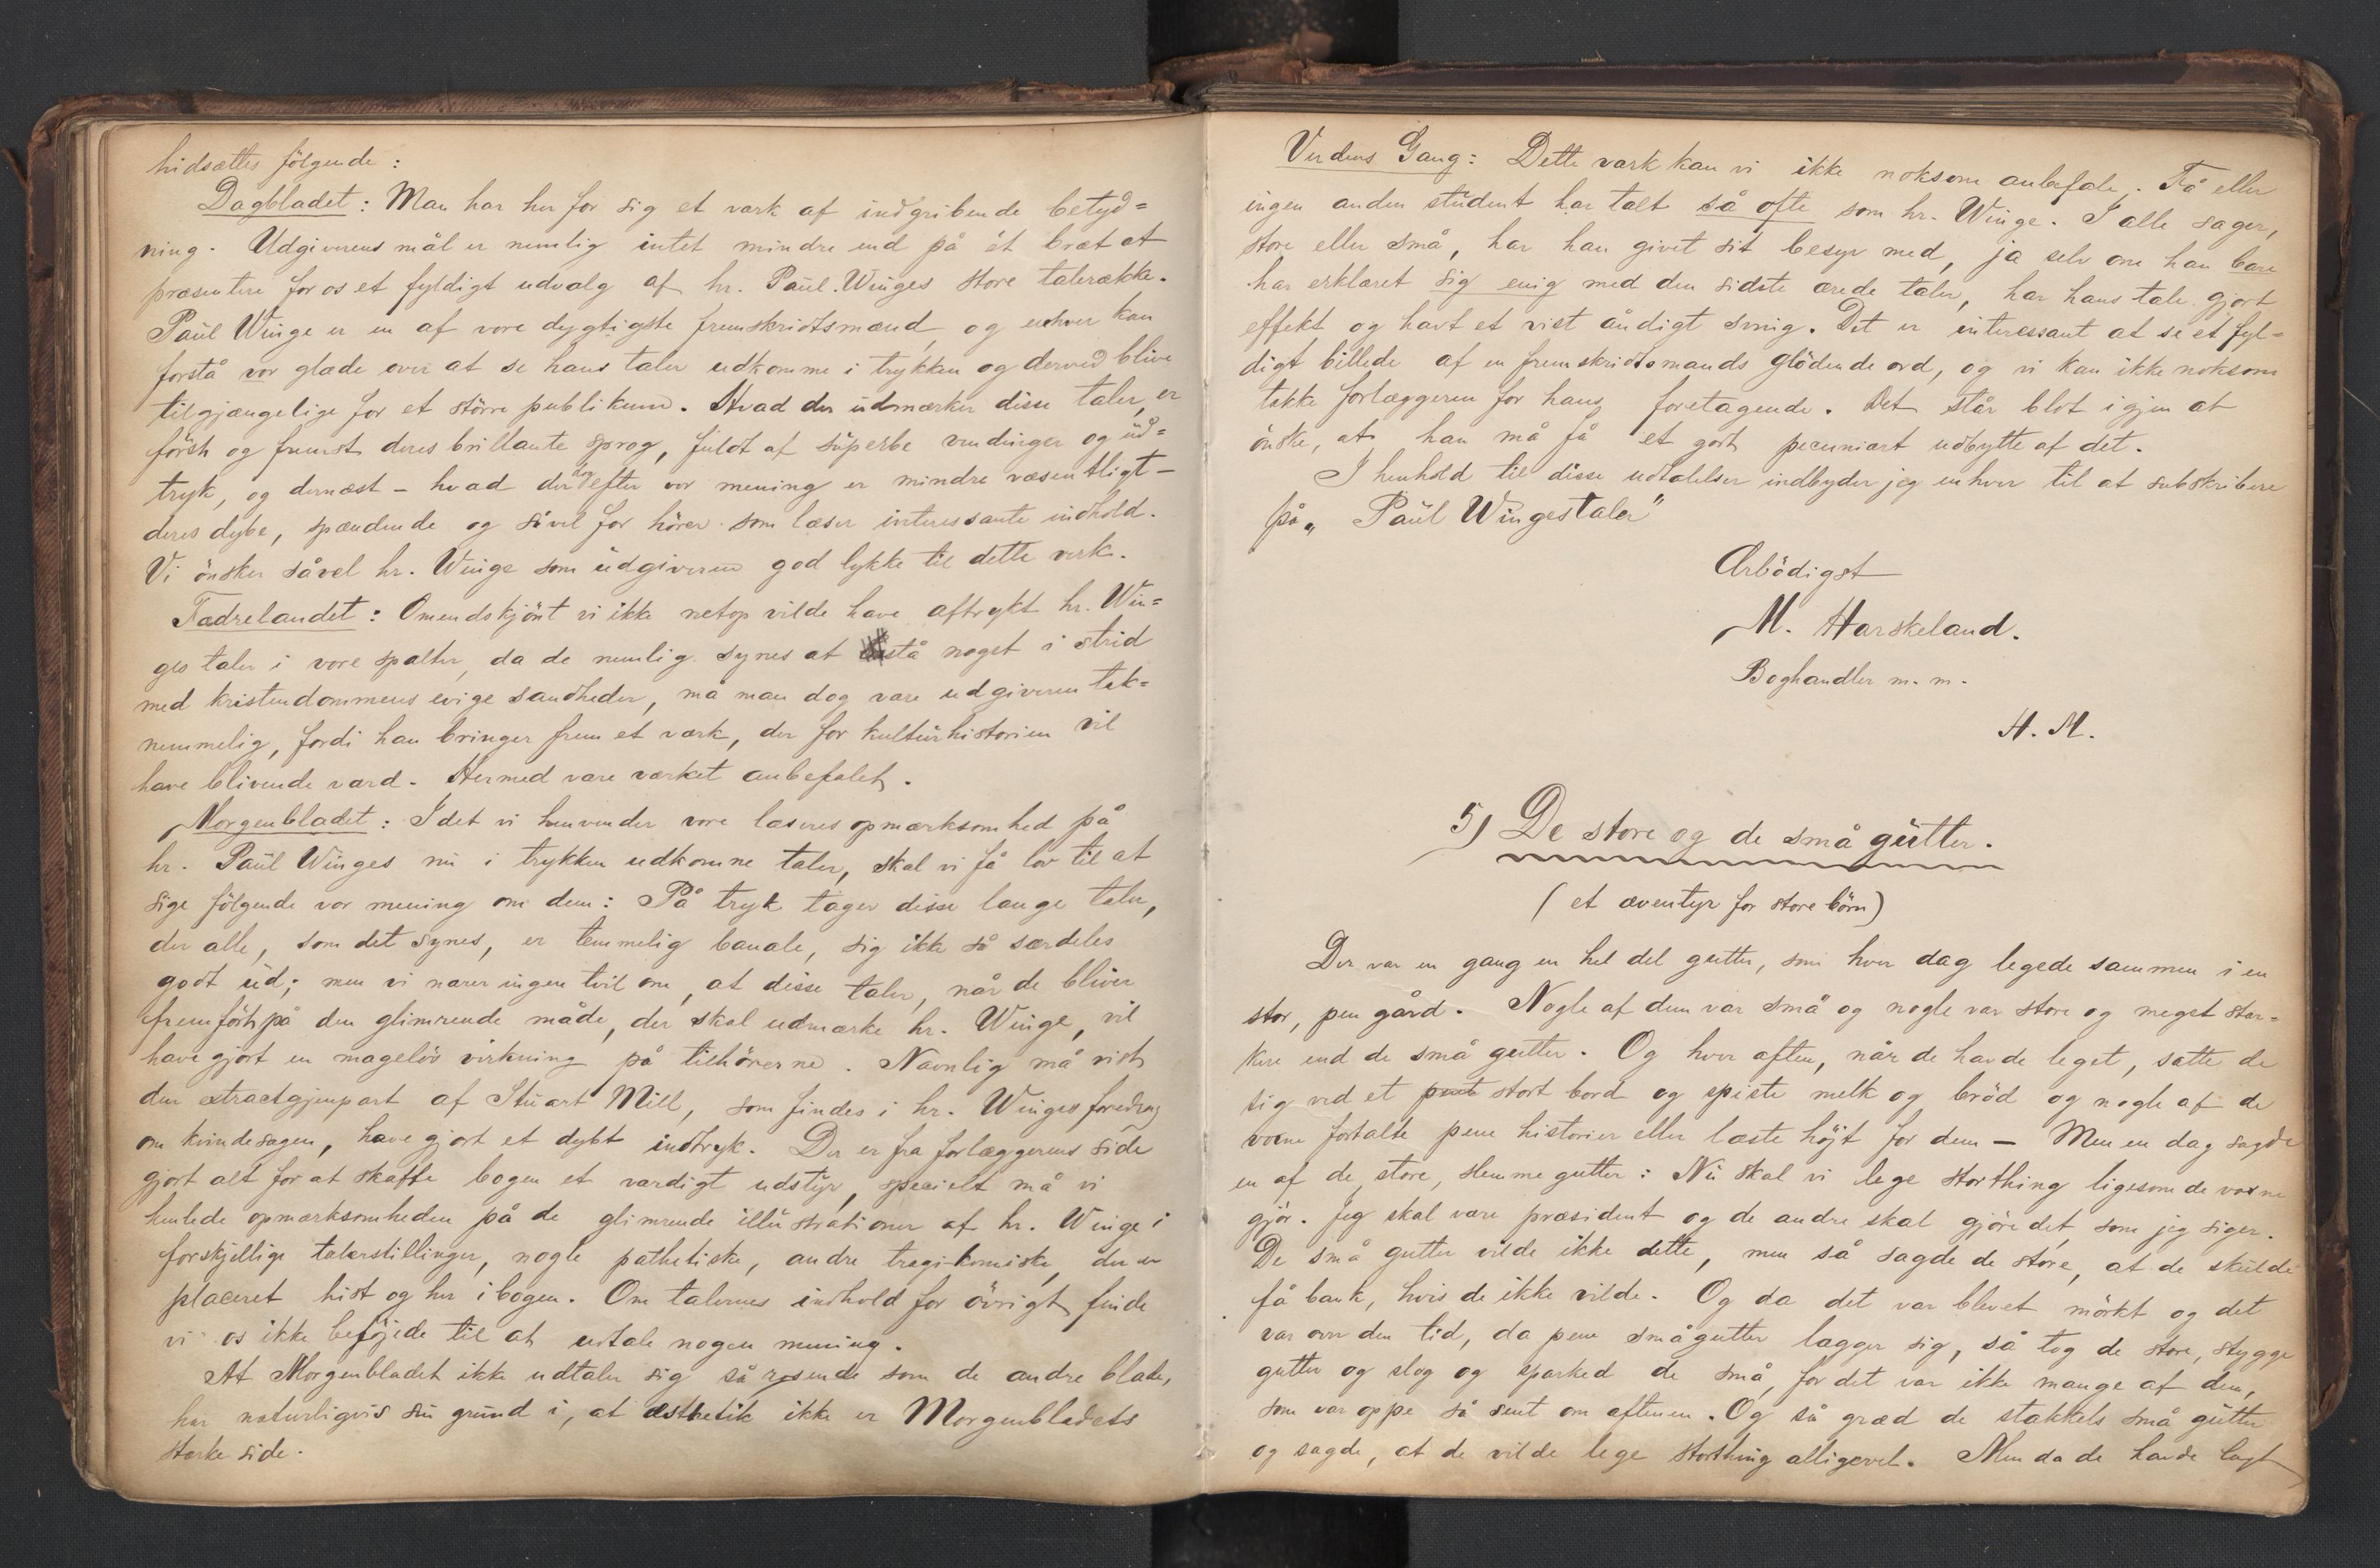 hidsættes følgende :
Dagbladet : Man har her for sig et værk af indgribende betyd=
ning. Udgiverens mål er nemlig intet mindre end på ét bræt at
præsentere for os et fyldigt udvalg af hr. Paul Winges store talerække.
Paul Winge er en af vore dygtigste fremskridtsmænd, og enhver kan
forstå vor glæde over at se hans taler udkomme i trykken og derved blive
tilgjængelige for et större publikum. Hvad der udmærker disse taler, er
först og fremst deres brillante sprog, fuldt af superbe vendinger og ud=
tryk, og dernæst – hvad der dog efter vor mening er mindre væsentligt –
deres dybe, spændende og såvel for hörer som læser interessante indhold.
Vi önsker såvel hr. Winge som udgiveren god lykke til dette verk.
Fædrelandet : Omendskjönt vi ikke netop vilde have aftrykt hr. Win=
ges taler i vore spalter, da de nemlig synes at stå noget i strid
med kristendommens evige sandheder, må man dog være udgiveren tak=
nemmelig, fordi han bringer frem et værk, der for kulturhistorien vil
have blivende værd. Hermed være værket anbefalet.
Morgenbladet : Idet vi henvender vore læseres opmærksomhed på
hr. Paul Winges nu i trykken udkomne taler, skal vi få lov til at
sige fölgende vor mening om dem : På tryk tager disse lange taler,
der alle, som det synes, er temmelig banale, sig ikke så særdeles
godt ud; men vi nærer ingen tvil om, at disse taler, når de bliver
fremfört på den glimrende måde, der skal udmærke hr. Winge, vil
have gjort en magelös virkning på tilhörerne. Navnlig må vist
den extractgjenpart af Stuart Mill, som findes i hr. Winges foredrag
om kvindesagen, have gjort et dybt indtryk. Der er fra forlæggerens side
gjort alt for at skaffe bogen et værdigt udstyr, specielt må vi
henlede opmærksomheden på de glimrende illustrationer af hr. Winge i
forskjellige talerstillinger, nogle pathetiske, andre tragi-komiske, der er
placeret hist og her i bogen. Om talernes indhold for övrigt finde
vi os ikke beföjede til at udtale nogen mening.
At Morgenbladet ikke udtaler sig så rosende som de andre blade,
har naturligvis sin grund i, at æsthetik ikke er Morgenbladets
stærke side.
Verdens Gang : Dette værk kan vi ikke noksom anbefale. Få eller
ingen anden student har talt så ofte som hr. Winge. I alle sager,
store eller små, har han givet sit besyv med, ja selv om han bare
har erklæret sig enig med den sidste ærede taler, har hans tale gjort
effekt og havt et vist åndigt sving. Det er interessant at se et fyl=
digt billede af en fremskridtsmands glödende ord, og vi kan ikke noksom
takke forlæggeren for hans foretagende. Det står blot igjen at
önske, at han må få et godt pecuniært udbytte af det.
I henhold til disse udtalelser indbyder jeg enhver til at subskribere
på „Paul Winges taler"
Ærbödigst
M. Harskeland.
Boghandler m. m.
H. M.
5) De store og de små gutter.
( et æventyr for store börn)
Der var en gang en hel del gutter, som hver dag legede sammen i en
stor, pen gård. Nogle af dem var små og nogle var store og meget stær=
kere end de små gutter. Og hver aften, når de havde leget, satte de
sig ved et pent stort bord og spiste melk og bröd og nogle af de
voxne fortalte pene historier eller læste höjt for dem – Men en dag sagde
en af de store, slemme gutter : Nu skal vi lege storthing ligesom de voxne
gjör. Jeg skal være præsident og de andre skal gjöre det, som jeg siger.
De små gutter vilde ikke dette, men så sagde de store, at de skulde
få bank, hvis de ikke vilde. Og da det var blevet mörkt og det
var over den tid, da pene smågutter lægger sig, så tog de store, stygge
gutter og slog og sparked de små, for det var ikke mange af dem,
som var oppe så sent om aftenen. Og så græd de stakkels små gutter
og sagde, at de vilde lege storthing alligevel. Men da de havde lagt